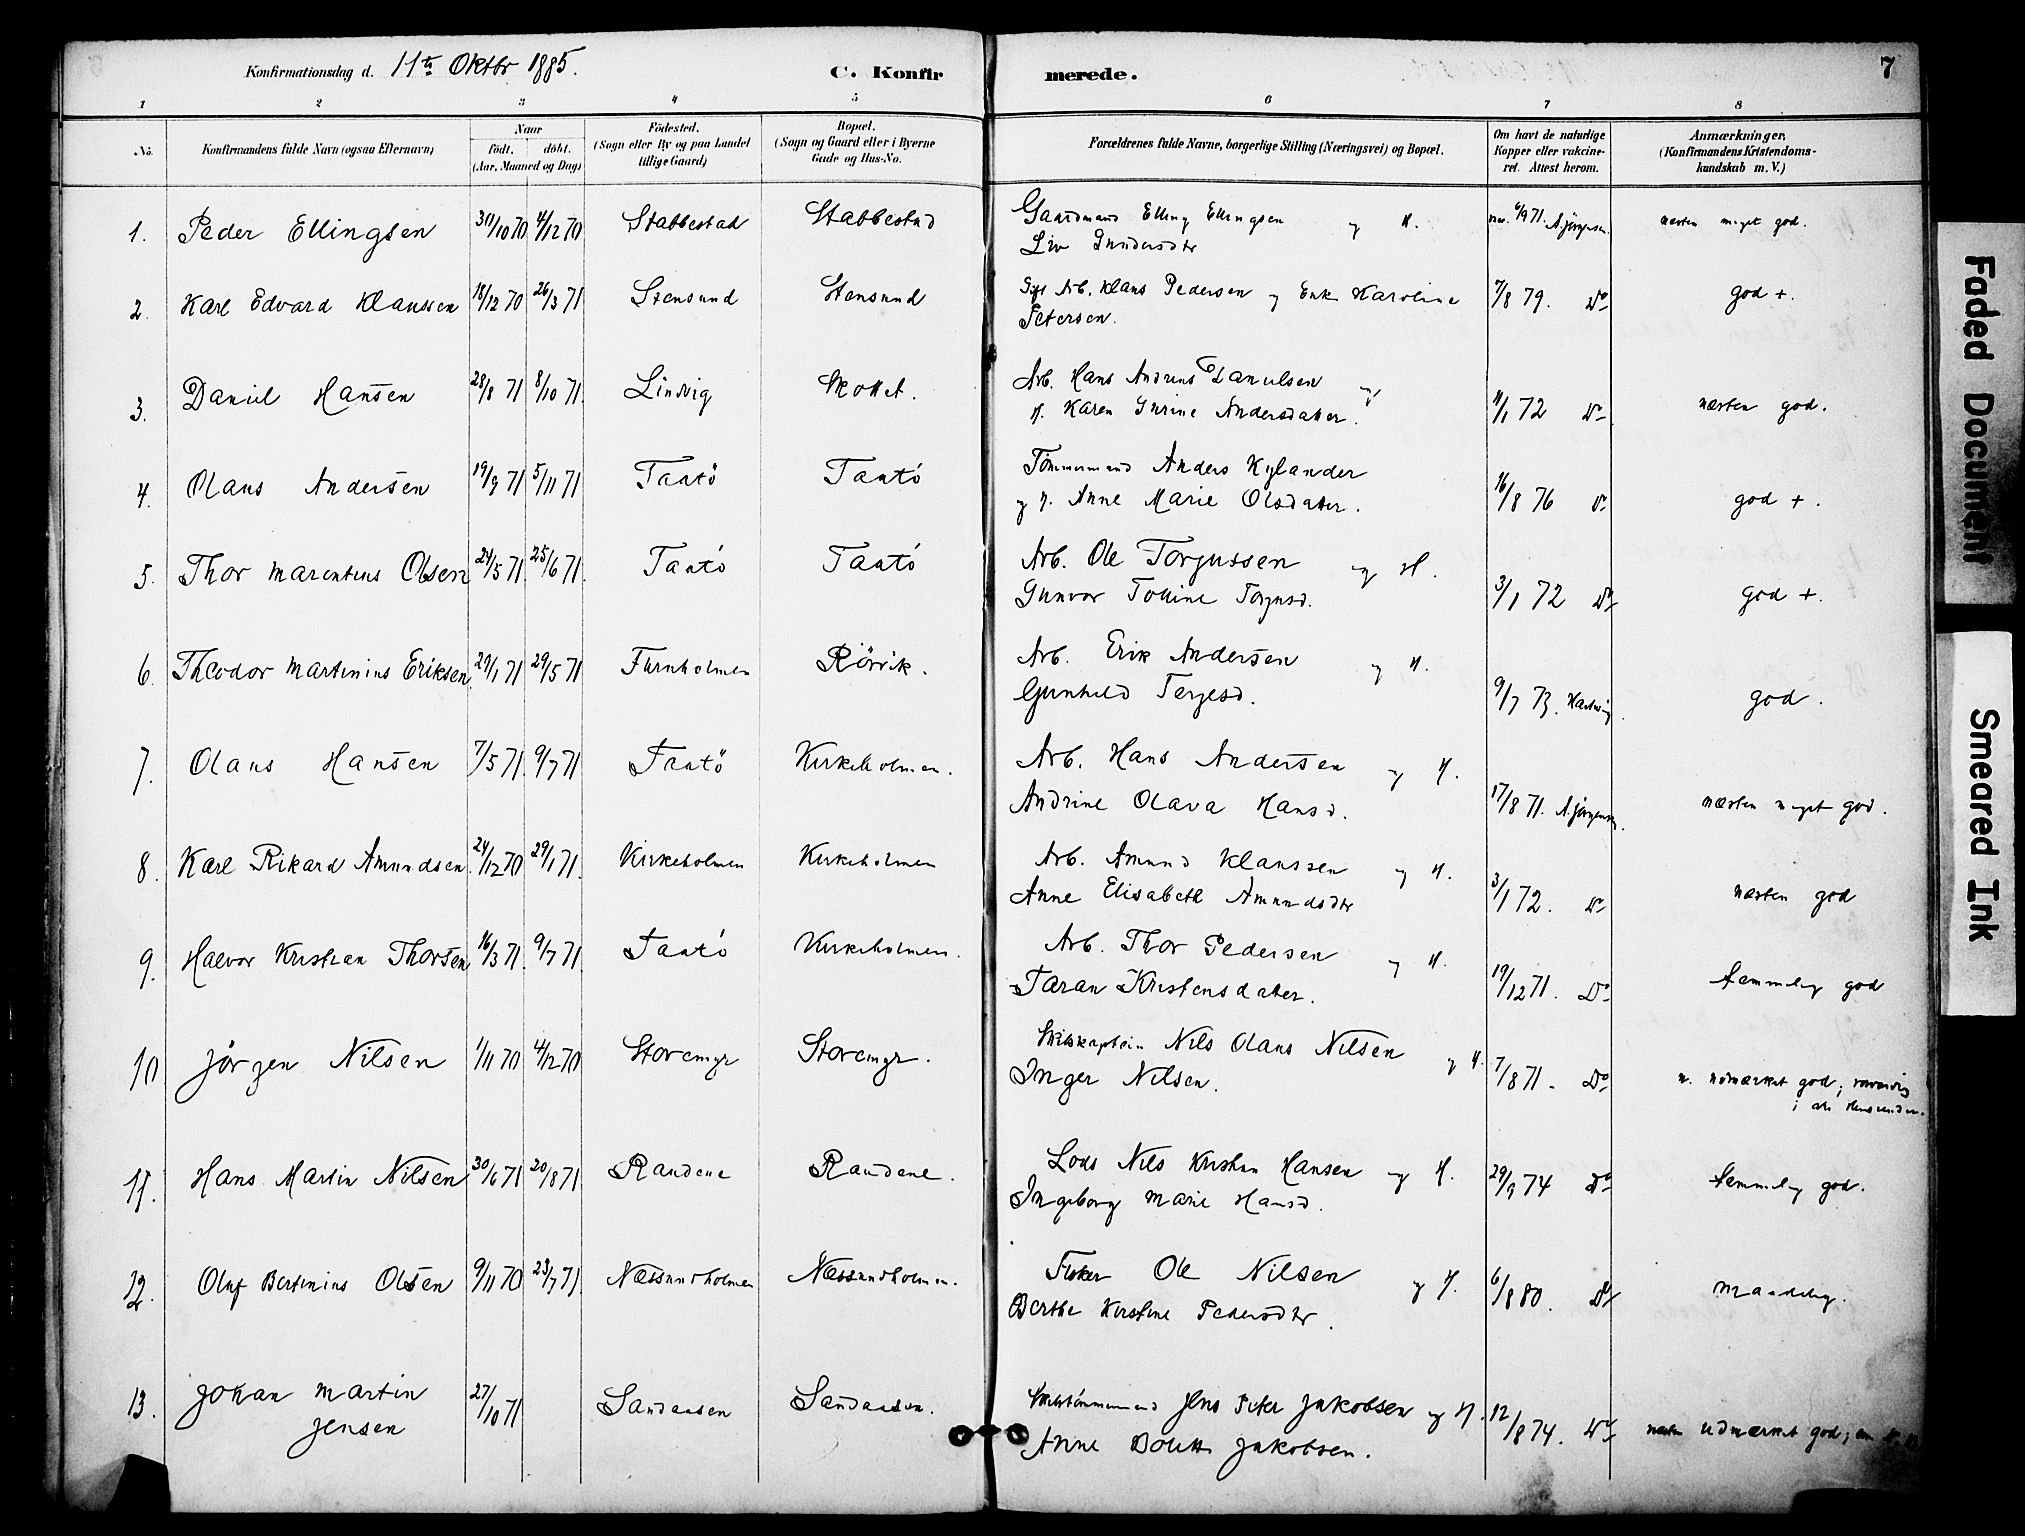 Konfirmationsdag d. 11te Oktbr 1885. C. Konfirmerede. 7
1 2 3 4 5 6 7 8
No. Konfirmandens fulde Navn (ogsaa Efternavn) Naar født. døbt. (Aar, Maaned og Dag) Fødested. (Sogn eller By og paa Landet tillige Gaard) Bopæl. (Sogn og Gaard eller i Byerne Gade og Hus-No. Forældrenes fulde Navne, borgerlige Stilling (Næringsvei) og Bopæl. Om havt de naturlige Kopper eller vakcineret. Attest herom. Anmærkninger. (Konfirmandens Kristendomskundskab m. V.)
1. Peder Ellingsen 30/10 70 4/12 70 Stabbestad Stabbestad Gaardmand Elling Ellingsen og H. 6/9 71. A. Jørgensen. næsten meget god.
Liv Gundersdtr
2. Karl Edvard Klaussen 18/12 70 26/3 71 Stensund Stensund Gift Arb. Klaus Pedersen og Enk. Karoline 7/8 79. Do god +.
Petersen.
3. Daniel Hansen 28/8 71 8/10 71. Lindvig Skottet. Arb. Hans Andreas Danielsen og
H. Karen Gurine Andersdatter. 11/1 72 Do næsten god.
4. Olaus Andersen 19/9 71 5/11 71 Taatö Taatö Tömmermand Anders Kylander
og H. Anne Marie Olsdatter. 16/8 76 Do god +.
5. Thor Marentius Olsen 24/5 71 25/6 71. Taatö Taatö Arb. Ole Torgussen og H.
Gunvor Tolline Torgusd. 3/1 72 Do god +.
6. Theodor Martinius Eriksen 29/1 71 29/5 71 Furuholmen Rörvik. Arb. Erik Andersen og H.
Gunhild Terjesd. 9/7 73. Hartvig god.
7. Olaus Hansen 7/5 71. 9/7 71 Taatö Kirkeholmen. Arb. Hans Andersen og H.
Andrine Olava Hansd. 17/8 71. A. Jørgensen. næsten meget god.
8. Karl Rikard Amundsen. 24/12 70 29/1 71. Kirkeholmen Kirkeholmen Arb. Amund Klaussen og H.
Anne Elisabeth Amundsdtr 3/1 72. Do næsten god
9. Halvor Kristian Thorsen 16/3 71. 9/7 71. Taatö Kirkeholmen. Arb. Thor Pedersen og H.
Taran Kristensdatter. 19/12 71. Do temmelig god
10 Jörgen Nilsen 1/11 70 4/12 70 Storemyr Storemyr. Skibskaptein Nils Olaus Nilsen og H.
Inger Nilsen. 7/8 71. Do n. udmærket god;
i alle Henseender.
11. Hans Martin Nilsen 30/6 71 20/8 71 Raudene Raudene. Lods Nils Kristian Hansen og H.
Ingeborg Marie Hansd. 29/9 74 Do temmelig god.
12. Oluf Bertinius Olsen 9/11 70 23/7 71. Næssundholmen Næssundholmen. Fisker Ole Nilsen og H.
Berthe Kirstine Pedersdtr. 6/8 80. Do maadelig.
13. Johan Martin 27/10 71 Sandaasen Sandaasen. Skibstömmermand Jens Peter Jakobsen og H.
Jensen Anne Bolette Jakobsen. 12/8 74. Do næsten udmærket god;
Faded Document
Smeared Ink